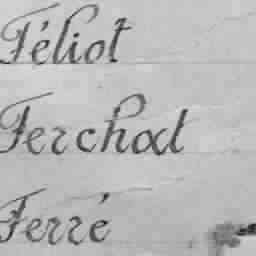 Féliot
Ferchat
Ferré